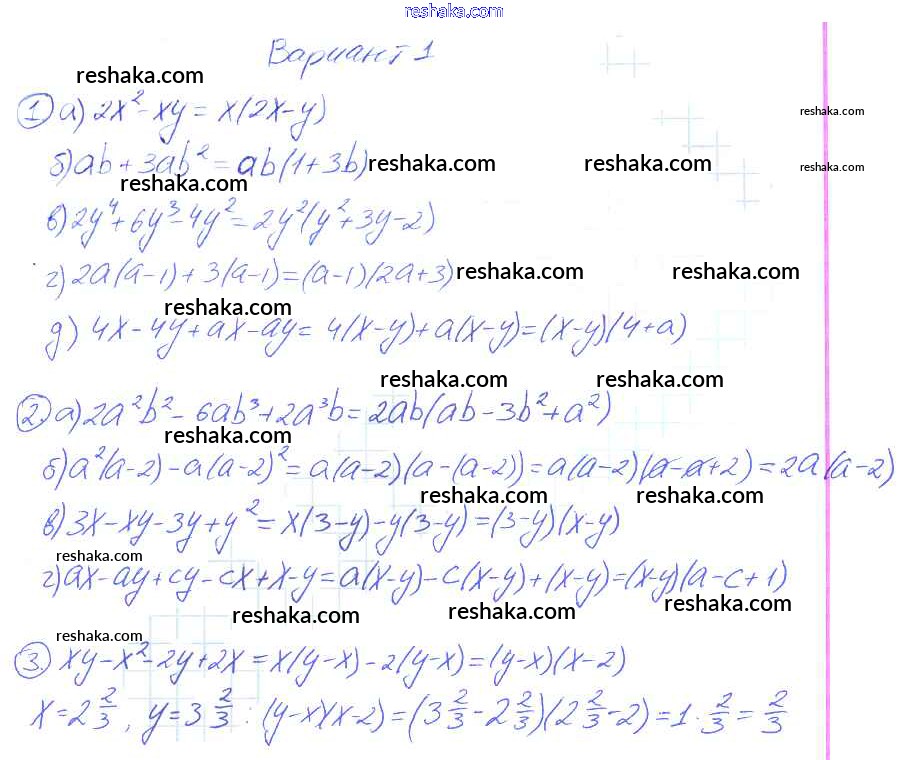 reshaka.com
Вариант 1
reshaka.com
① а) 2x² - xy = x(2x-y)
reshaka.com
б) ab + 3ab² = ab(1+3b) reshaka.com reshaka.com
reshaka.com
reshaka.com
в) 2y⁴ + 6y³ - 4y² = 2y²(y² + 3y - 2)
г) 2a(a-1) + 3(a-1) = (a-1)(2a+3) reshaka.com reshaka.com
reshaka.com
д) 4x - 4y + ax - ay = 4(x-y) + a(x-y) = (x-y)(4+a)
reshaka.com reshaka.com
② а) 2a²b² - 6ab³ + 2a³b = 2ab(ab - 3b² + a²)
reshaka.com
б) a²(a-2) - a(a-2)² = a(a-2)(a-(a-2)) = a(a-2)(a-a+2) = 2a(a-2)
reshaka.com reshaka.com
в) 3x - xy - 3y + y² = x(3-y) - y(3-y) = (3-y)(x-y)
reshaka.com
г) ax - ay + cy - cx + x - y = a(x-y) - c(x-y) + (x-y) = (x-y)(a-c+1)
reshaka.com reshaka.com reshaka.com
reshaka.com
③. xy - x² - 2y + 2x = x(y-x) - 2(y-x) = (y-x)(x-2)
x = 2 2/3, y = 3 2/3 : (y-x)(x-2) = (3 2/3 - 2 2/3)(2 2/3 - 2) = 1 · 2/3 = 2/3